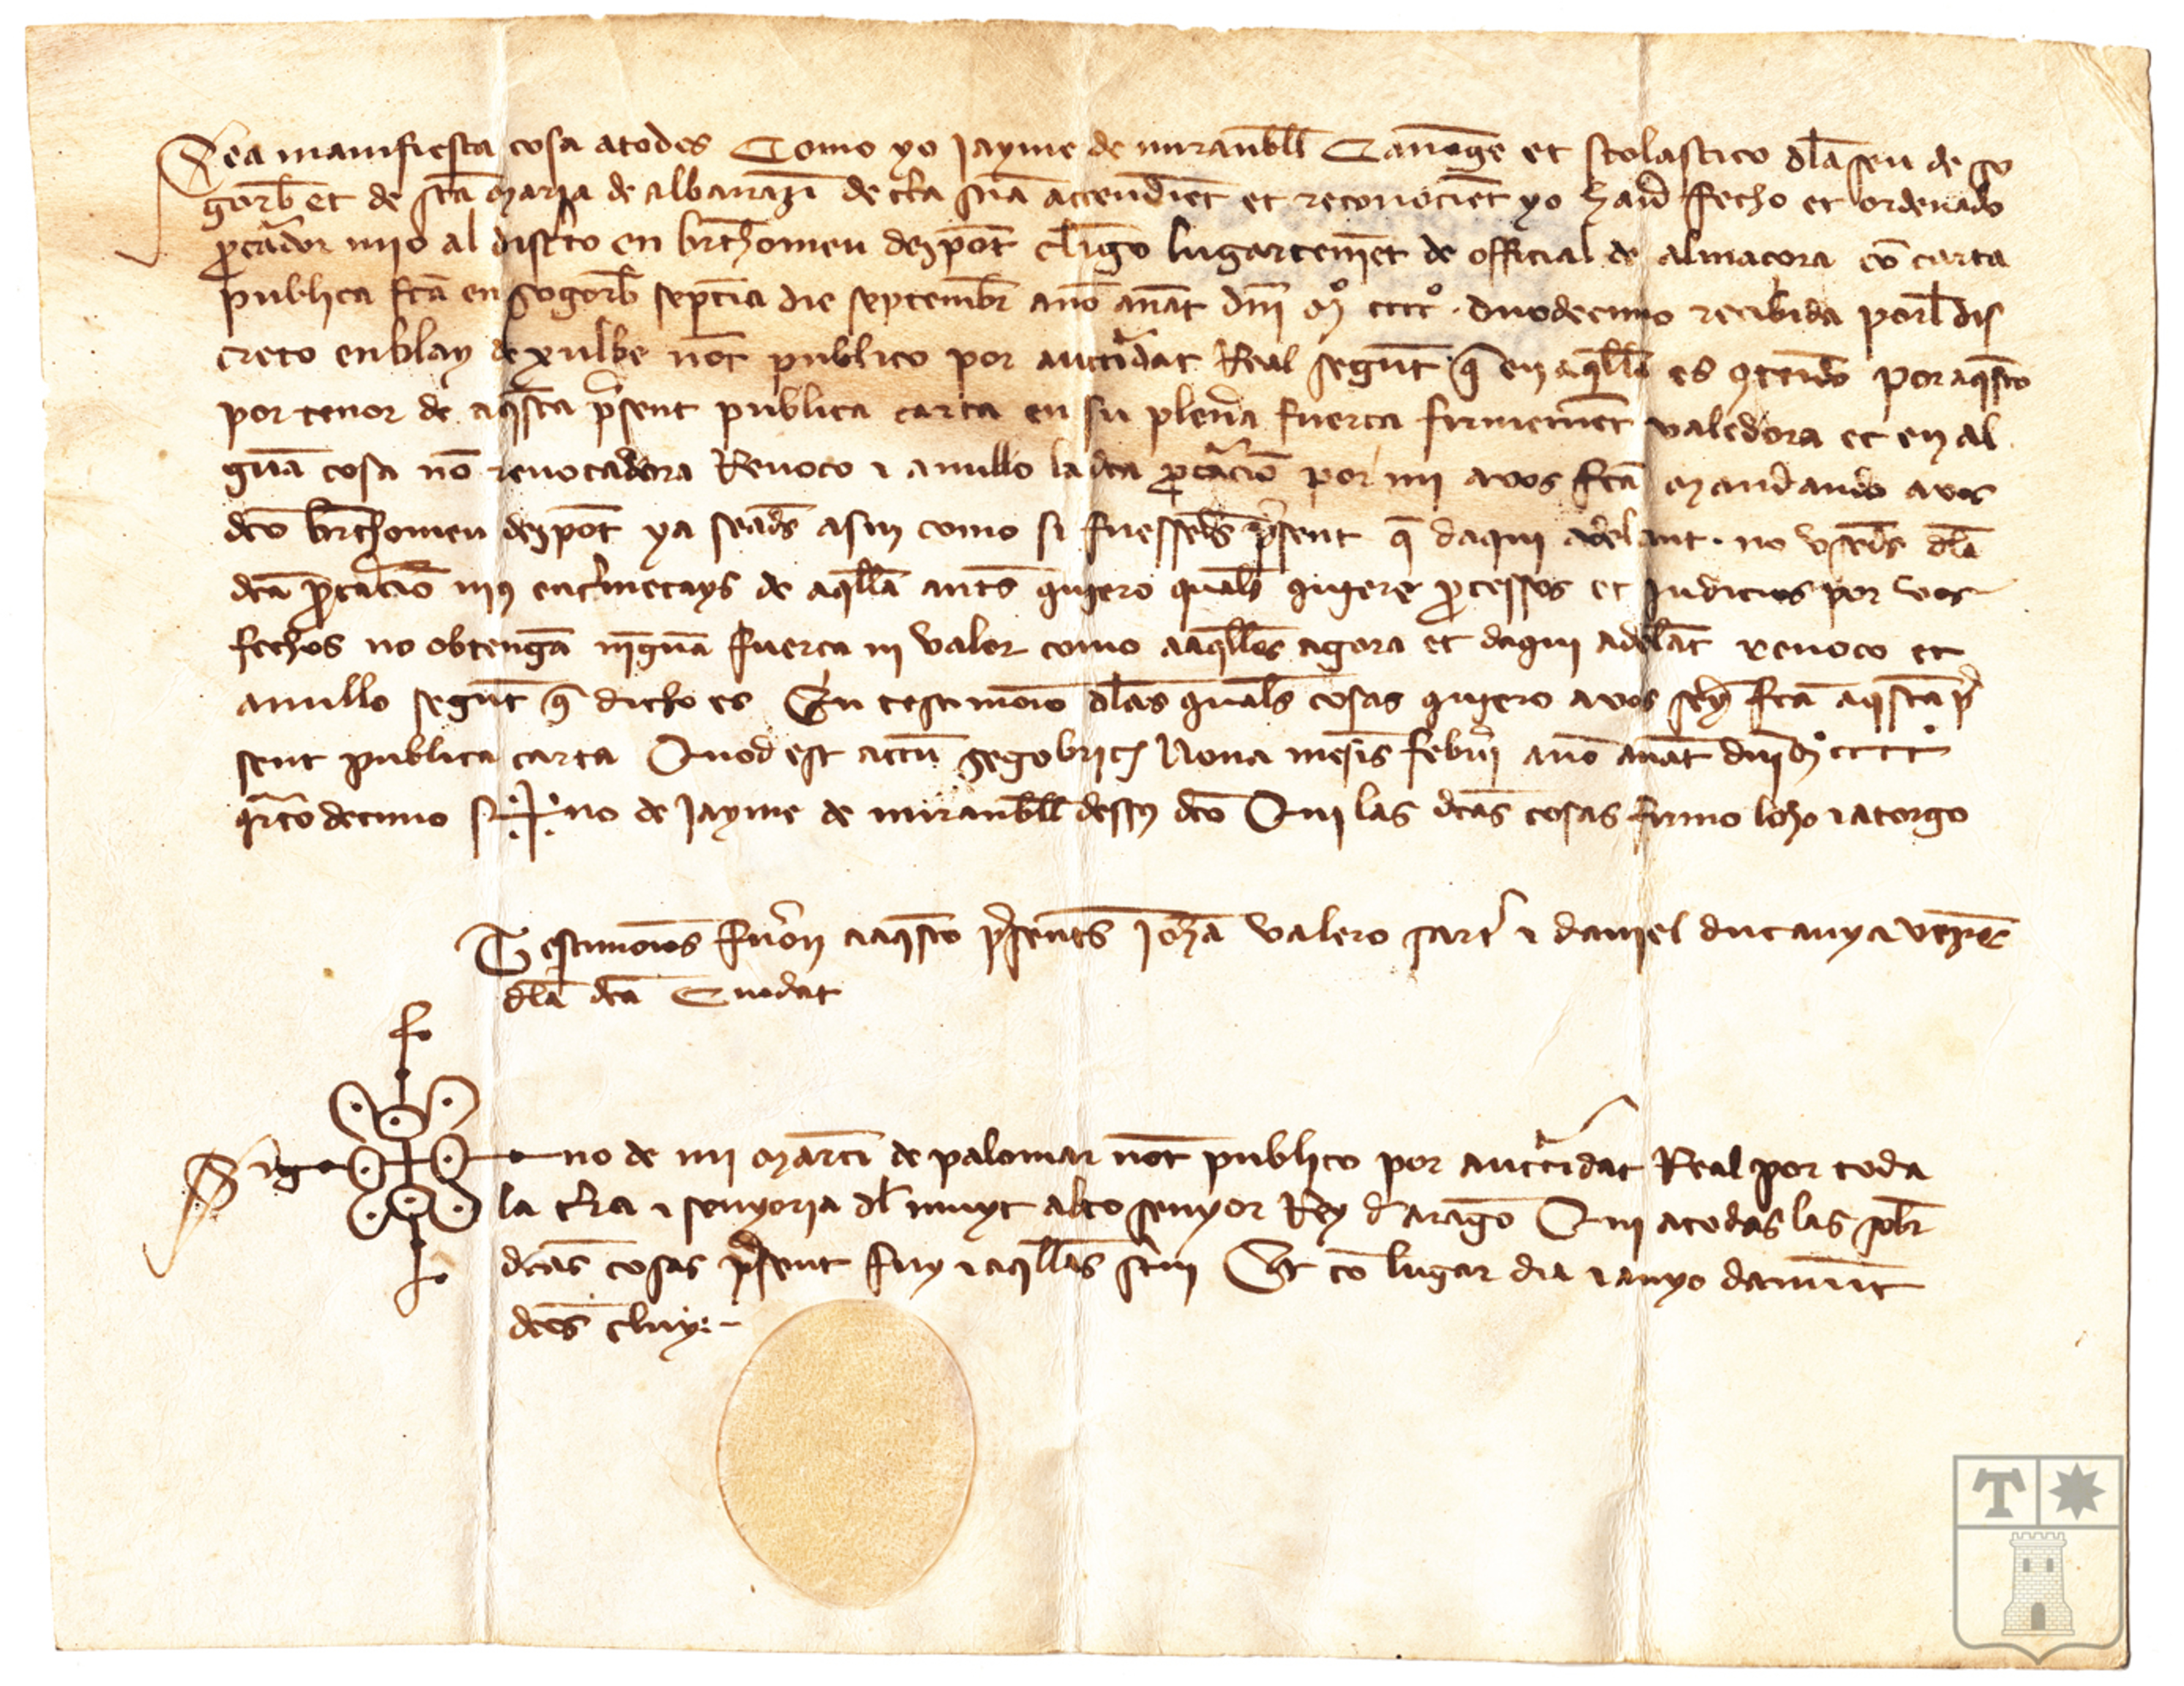 Sea manifiesta cosa atodos Como yo Jayme de miranbll Canonge et scolastico dla seu de so
gorb et de sta maria de albarrazi de cta sna attendiet et reconociet yo hau fecho et ordenado
pcador mjo al discto en brthomeu dezpot cligo lugartenjet de official de almaçora co carta
publica fta en sogorb septia die septembr ano anat dni mº ccccº duodecimo recibida porl dis
creto enblay de xulbe not publico por auctidat Real segunt q en aqlla es 9tenido por aqsto
por tenor de aqsta psent publica carta en su plena fuerça firmemet valedora et en al
guna cosa no reuocadora Reuoco i anullo la dca pcacio por mi a vos fta mandando a vos
dco brthomeu dezpot ya seads asin como si fuesseds psent q daqui adelant no vseds dla
dca pcacio nj9 entmetays de aqlla ants qujero quals qujere pcessos et Judicios por vos
fechos no obtenga njguna fuerça ni valor como aaqllos agora et daqui adelat reuoco et
anullo segunt q dicho es En testimonio dlas quals cosas qujero a vos sey fta aqsta p
sent publica carta Quod est actu Segobric Nona mesis febrri ano anat dni mº ccccº
qrto decimo si no de Jayme de miranbll desus dco Qui las dcas cosas firmo loho i atorgo
Testimonios fuero aaqsto psents Joha valero sart i daniel ducanya vezis
dla dca Ciudat
Sig no de mi marti de palomar not publico por auctidat Real por toda
la tra i senyoria dl muyt alto senyor Rey d arago Qui atodas las sobr
dcas cosas psent fuy i aqllas scriuj Et co lugar dia i anyo damut
dcos cluy
T